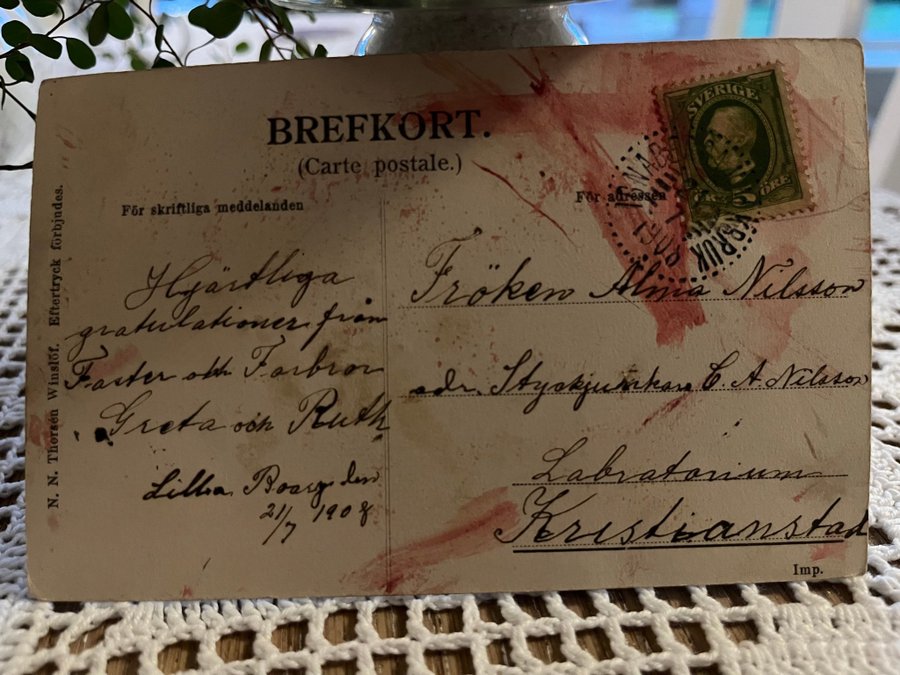 BREFKORT.
(Carte postale.)
För skriftliga meddelanden
För adressen
SVERIGE
5 ÖRE
1908
N. N. Thorsén Winslöf. Eftertryck förbjudes.
Hjärtliga
gratulationer från
Faster och Farbror
Greta och Ruth
Lilla Boarp den
21/7 1908
Fröken Alma Nilsson
adr. Styckjunkare C. A. Nilsson
Labratorium
Kristianstad
Imp.